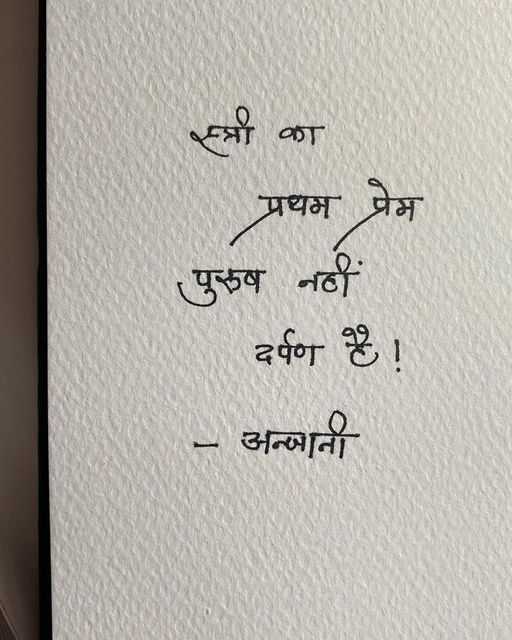 स्त्री का
प्रथम प्रेम
पुरुष नहीं
दर्पण है !
- अन्जानी